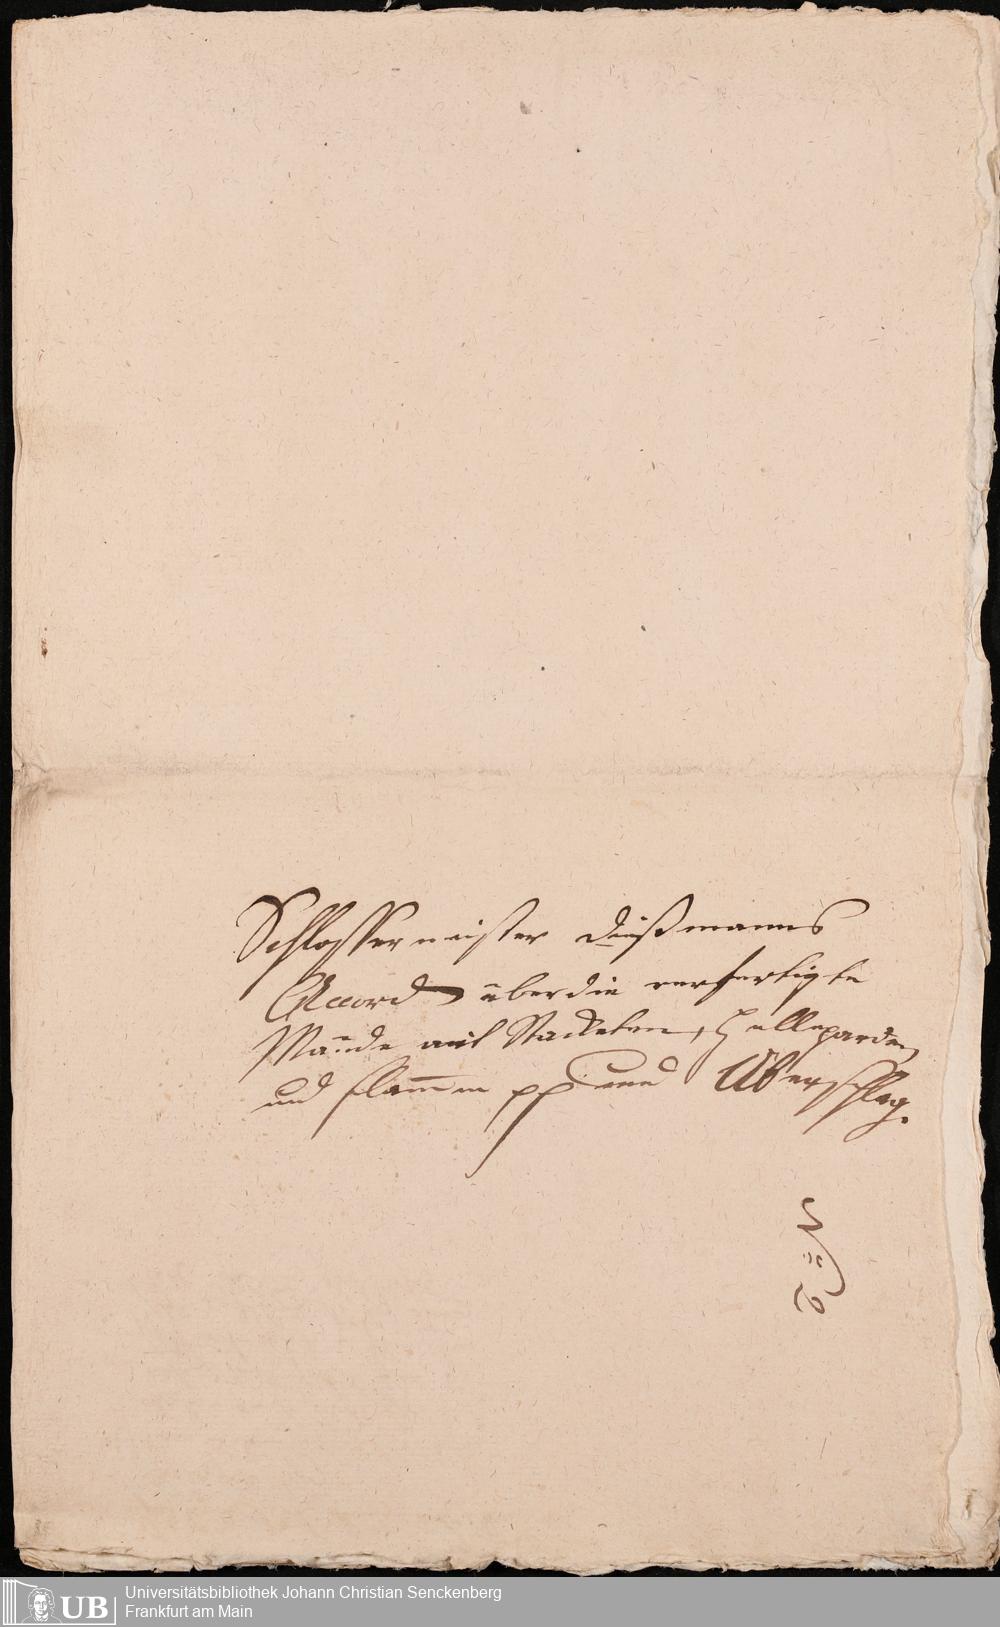 Schlossermeister Dießmanns
Accord über die verfertigte
Wände mit Stacketen, Helleparden
und flam̄en pp und Überschlag.
UB
Universitätsbibliothek Johann Christian Senckenberg
Frankfurt am Main